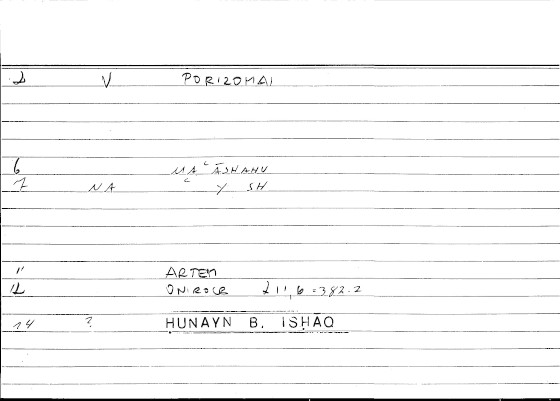 2 V PORIZOMAI
6 MAʿĀSHAHU
7 NA ʿ Y SH
11 ARTEM
12 ONIROCR 211,6 = 382.2
14 ? HUNAYN B. ISḤĀQ